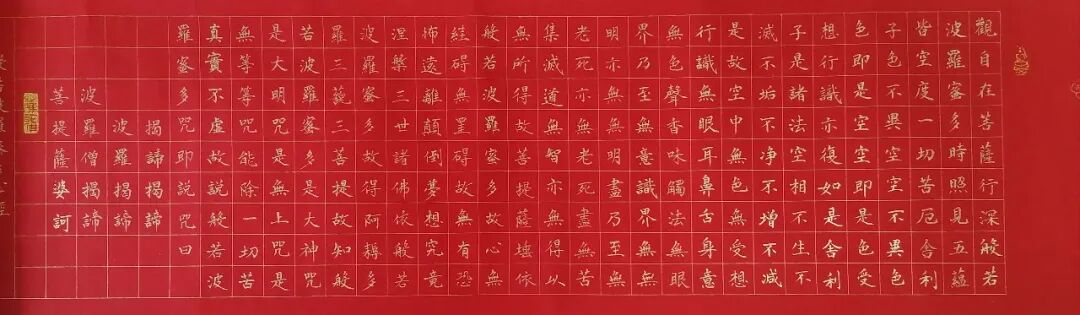 觀自在菩薩行深般若
波羅蜜多時照見五蘊
皆空度一切苦厄舍利
子色不異空空不異色
色即是空空即是色受
想行識亦復如是舍利
子是諸法空相不生不
滅不垢不净不增不減
是故空中無色無受想
行識無眼耳鼻舌身意
無色聲香味觸法無眼
界乃至無意識界無無
明亦無無明盡乃至無
老死亦無老死盡無苦
集滅道無智亦無得以
無所得故菩提薩埵依
般若波羅蜜多故心無
絓碍無罣碍故無有恐
怖遠離顛倒夢想究竟
涅槃三世諸佛依般若
波羅蜜多故得阿耨多
羅三藐三菩提故知般
若波羅蜜多是大神咒
是大明咒是無上咒是
無等等咒能除一切苦
真實不虛故說般若波
羅蜜多咒即說咒曰
揭諦揭諦
波羅揭諦
波羅僧揭諦
菩提薩婆訶